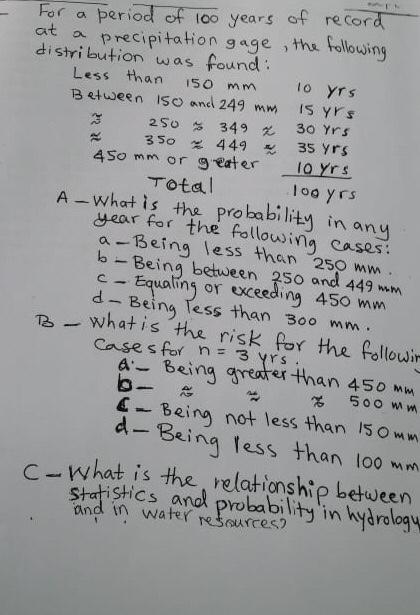 For a period of 100 years of record
at a precipitation gage, the following
distribution was found:
Less than 150 mm 10 yrs
Between 150 and 249 mm 15 yrs
≈ 250 ≈ 349 ≈ 30 yrs
≈ 350 ≈ 449 ≈ 35 yrs
450 mm or greater 10 yrs
Total 100 yrs
A - What is the probability in any
year for the following cases:
a - Being less than 250 mm.
b - Being between 250 and 449 mm
c - Equaling or exceeding 450 mm
d - Being less than 300 mm.
B - What is the risk for the followin
cases for n = 3 yrs.
a - Being greater than 450 mm
b - ≈ ≈ ≈ 500 mm
c - Being not less than 150 mm
d - Being less than 100 mm
C - What is the relationship between
statistics and probability in hydrology
and in water resources?